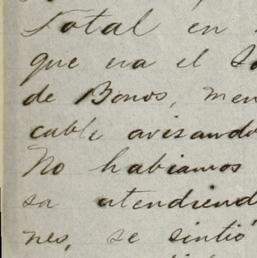 Total en
que era el
de Bonos, men
cable avisando
No habiamos
sa atendiend
nes, se sintió